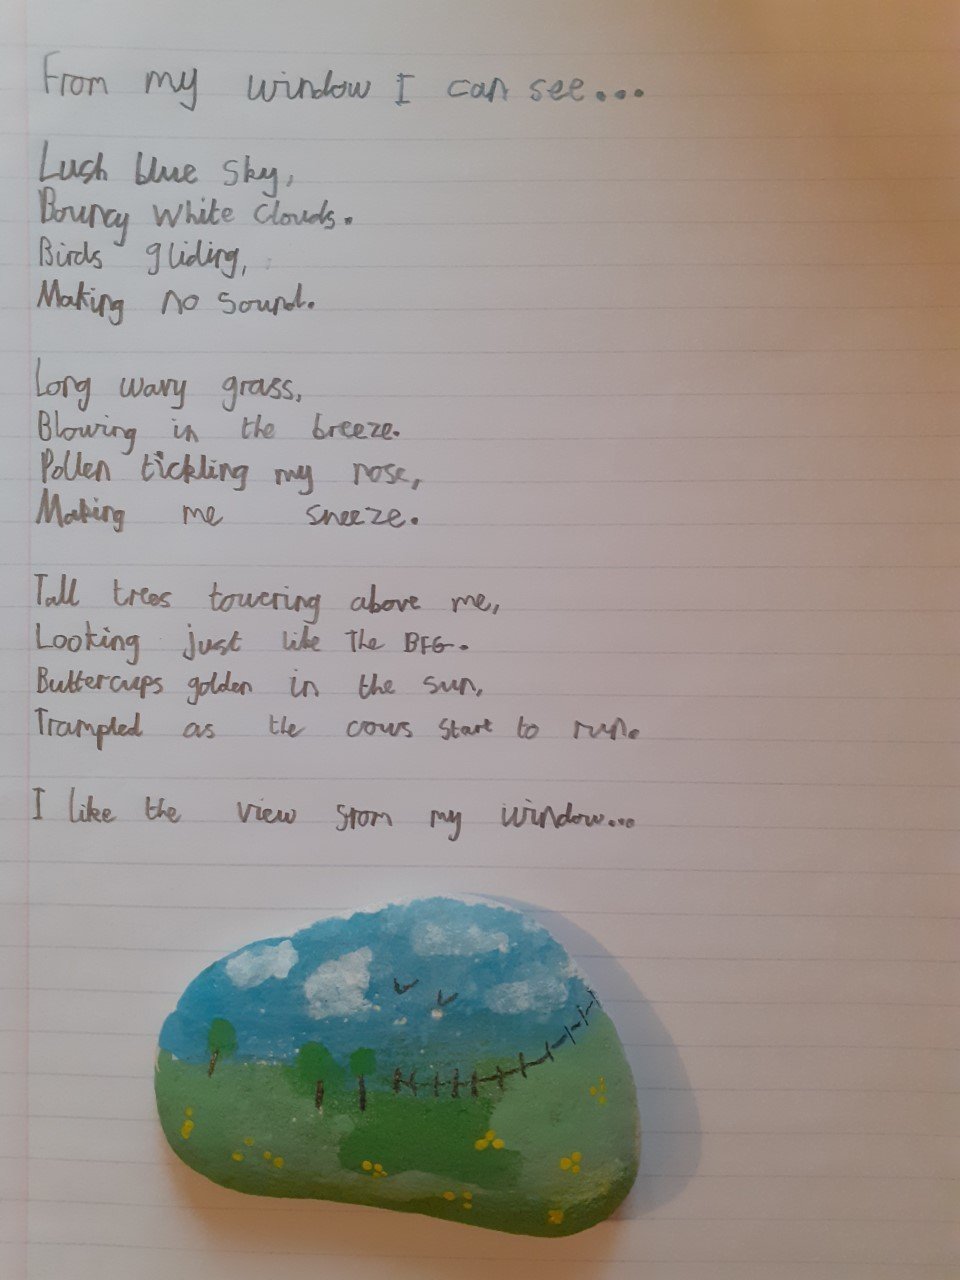 From my window I can see...
Lush blue sky,
Bouncy white clouds.
Birds gliding,
Making no sound.
Long wavy grass,
Blowing in the breeze.
Pollen tickling my nose,
Making me sneeze.
Tall trees towering above me,
Looking just like the BFG.
Buttercups golden in the sun,
Trampled as the cows start to run.
I like the view from my window...